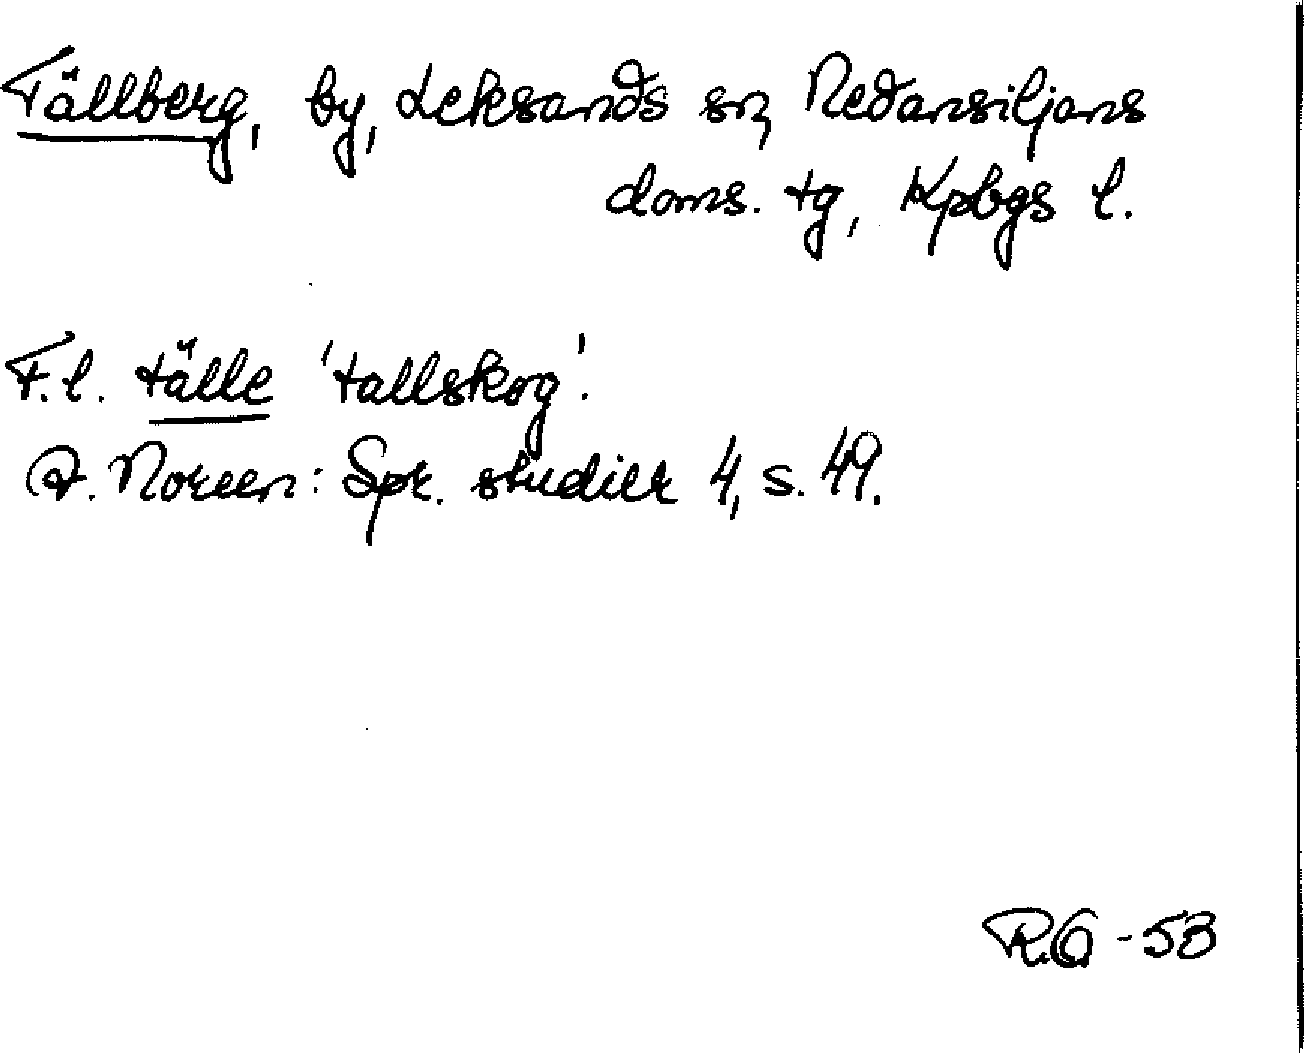 Tällberg, by, Leksands sn, Nedansiljans
doms. tg, Kpbgs l.
F.l. tälle 'tallskog'.
A. Noreen: Spr. studier 4, s. 49.
R.Ö -53